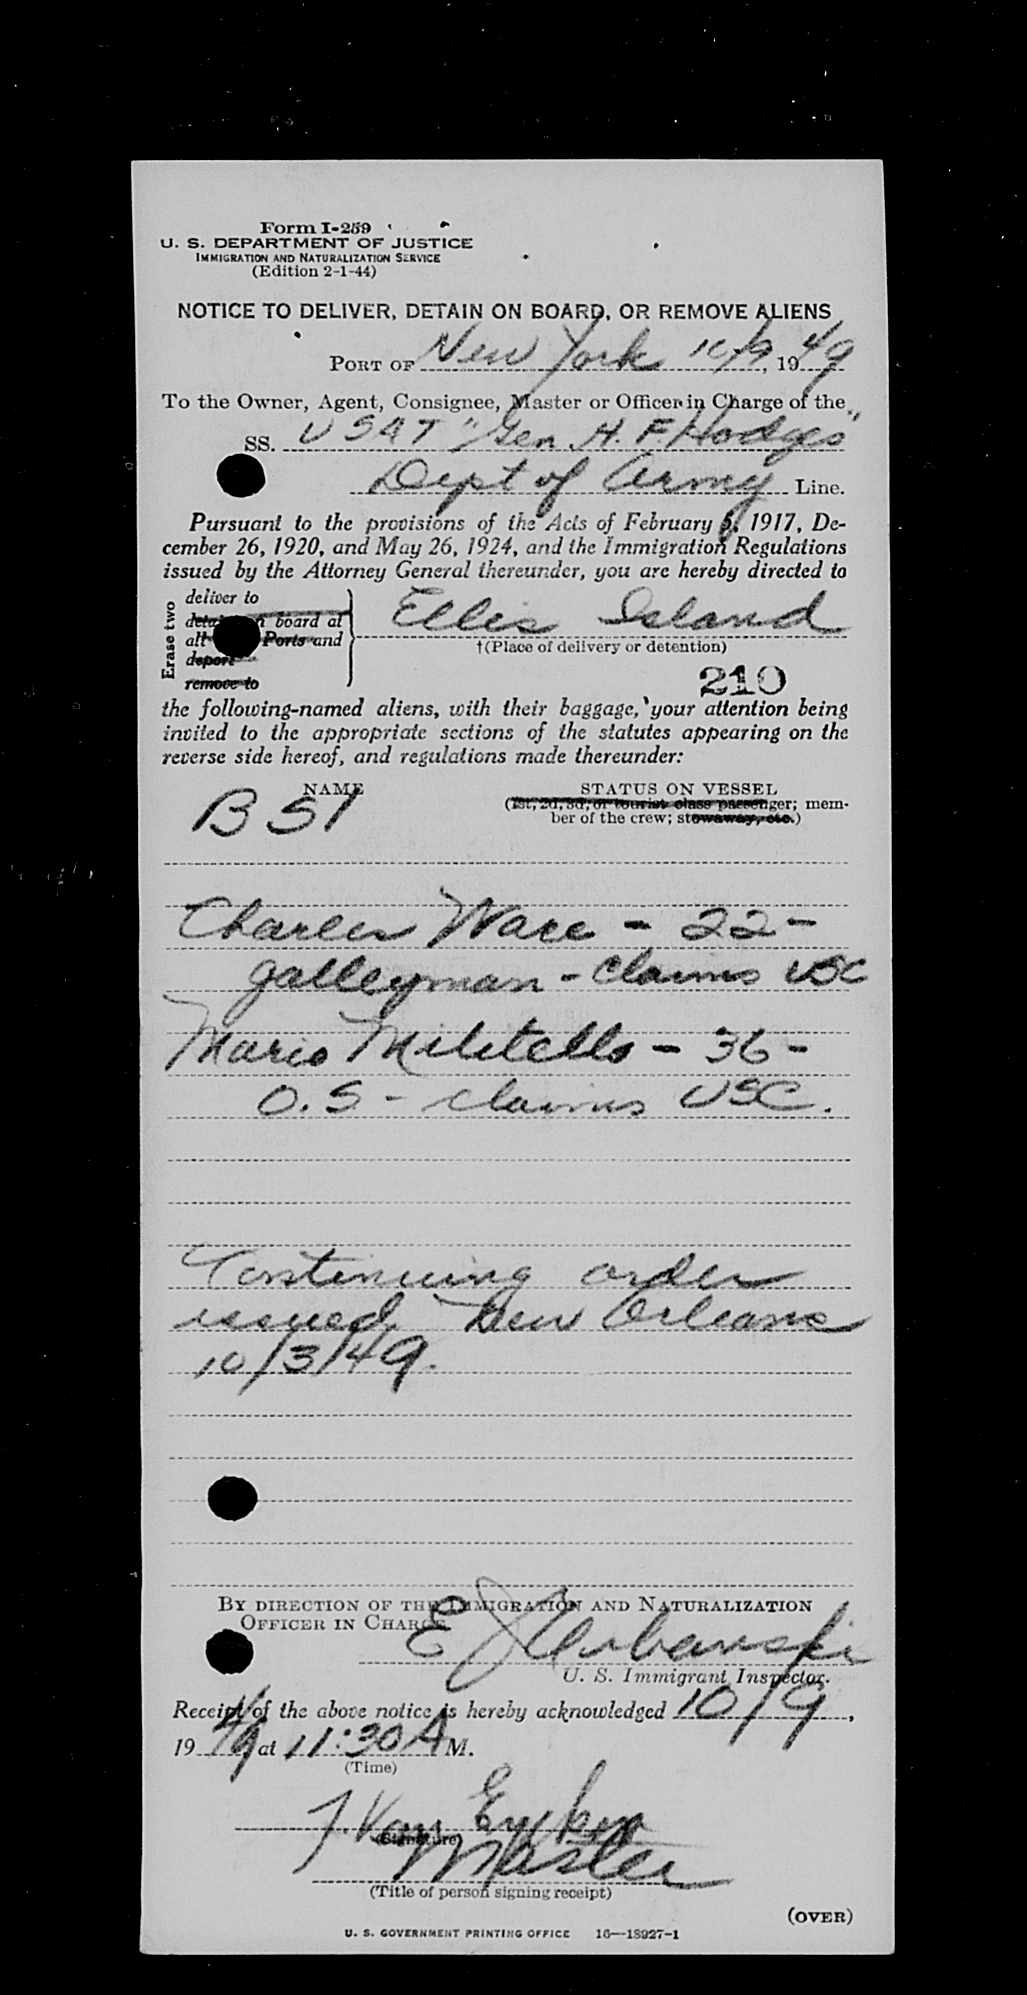 Form I-259
U. S. DEPARTMENT OF JUSTICE
IMMIGRATION AND NATURALIZATION SERVICE
(Edition 2-1-44)
NOTICE TO DELIVER, DETAIN ON BOARD, OR REMOVE ALIENS
PORT OF New York 10/9, 1949
To the Owner, Agent, Consignee, Master or Officer in Charge of the
SS. USAT "Gen. H. F. Hodges"
Dept of Army Line.
Pursuant to the provisions of the Acts of February 5, 1917, De-
cember 26, 1920, and May 26, 1924, and the Immigration Regulations
issued by the Attorney General thereunder, you are hereby directed to
Erase two
deliver to
detain on board at
all Ports and
deport
remove to
Ellis Island
†(Place of delivery or detention)
210
the following-named aliens, with their baggage, your attention being
invited to the appropriate sections of the statutes appearing on the
reverse side hereof, and regulations made thereunder:
NAME STATUS ON VESSEL
(1st, 2d, 3d, or tourist class passenger; mem-
ber of the crew; stowaway, etc.)
BSI
Charles Ware - 22 -
galleyman - claims USC
Mario Militello - 36 -
O.S - claims USC.
Continuing order
issued New Orleans
10/3/49.
BY DIRECTION OF THE IMMIGRATION AND NATURALIZATION
OFFICER IN CHARGE
E J Urbanski
U. S. Immigrant Inspector.
Receipt of the above notice is hereby acknowledged 10/9,
1949 at 11:30 A M.
(Time)
J. Van
(Signature)
Master
(Title of person signing receipt)
(OVER)
U. S. GOVERNMENT PRINTING OFFICE 16—18927-1